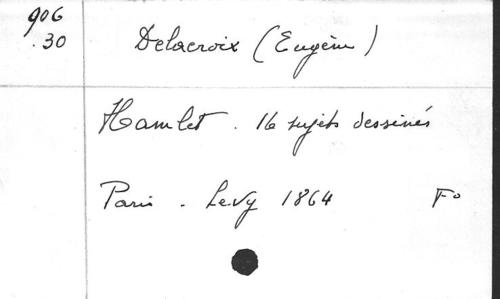 906
.30
Delacroix (Eugène)
Hamlet. 16 sujets dessinés
Paris - Levy 1864 Fo